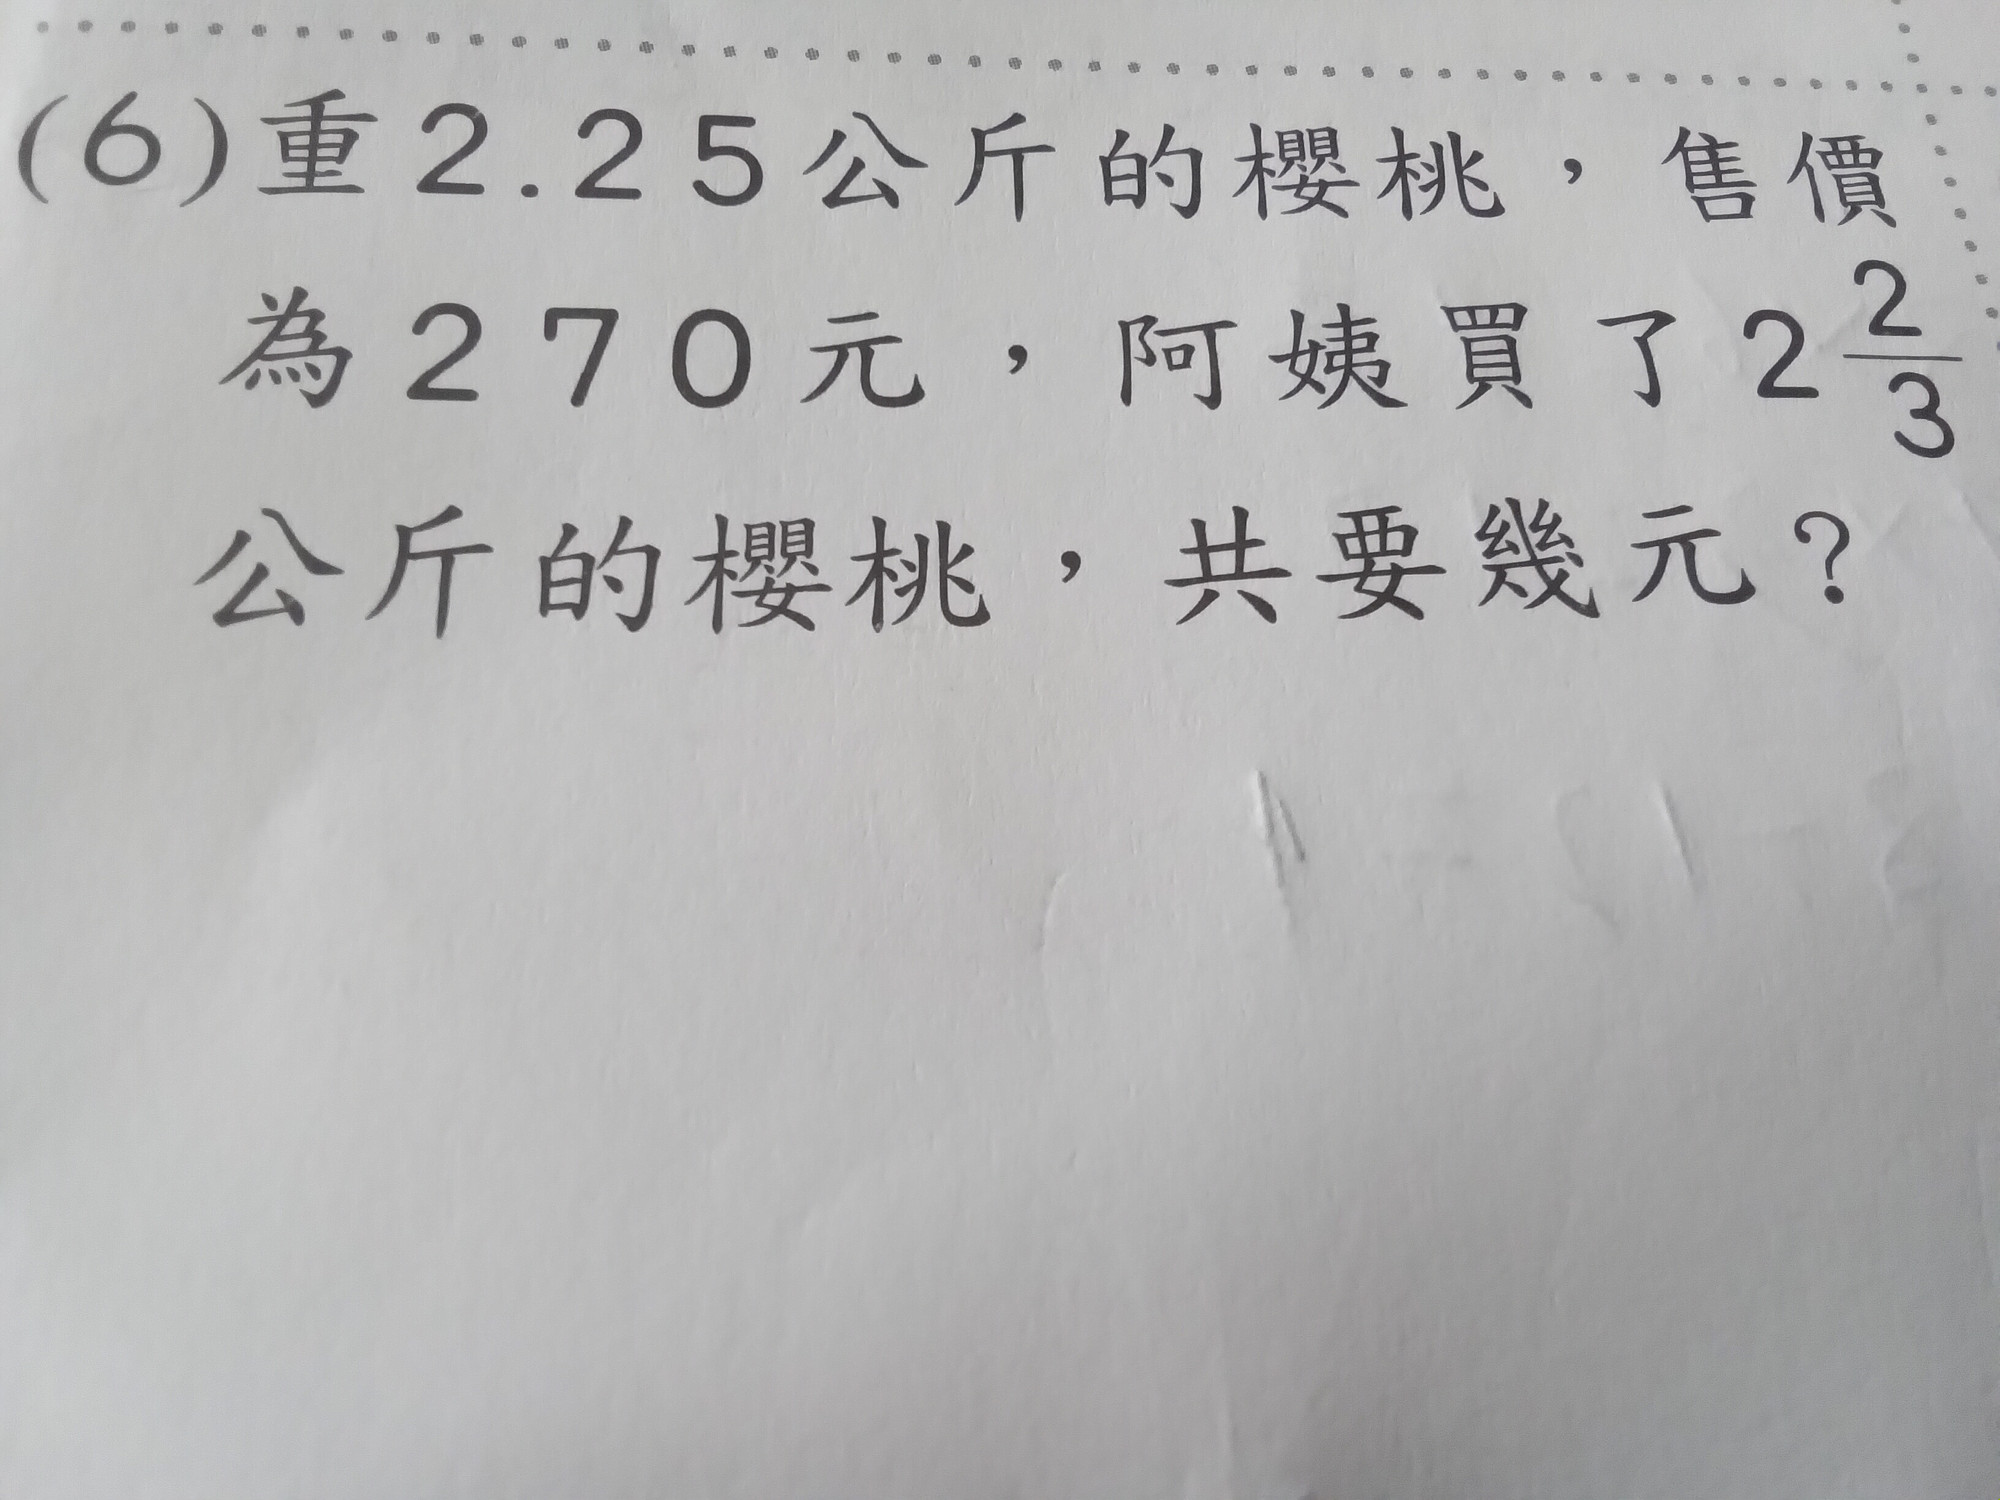 (6)重2.25公斤的櫻桃，售價
為270元，阿姨買了2 2/3
公斤的櫻桃，共要幾元？